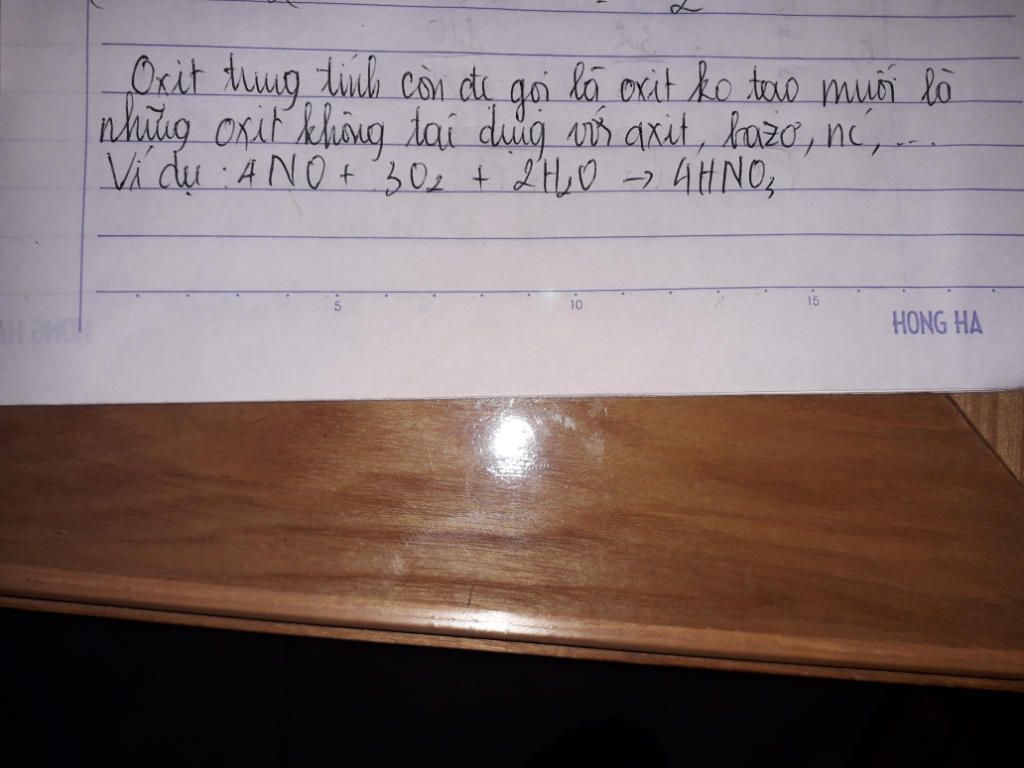 Oxit tung tính còn đc gọi là oxit ko tạo muối là
những oxit không tại dụng với axit, bazơ, nc, ...
Ví dụ : 4NO + 3O₂ + 2H₂O → 4HNO₃
5 10 15
HONG HA